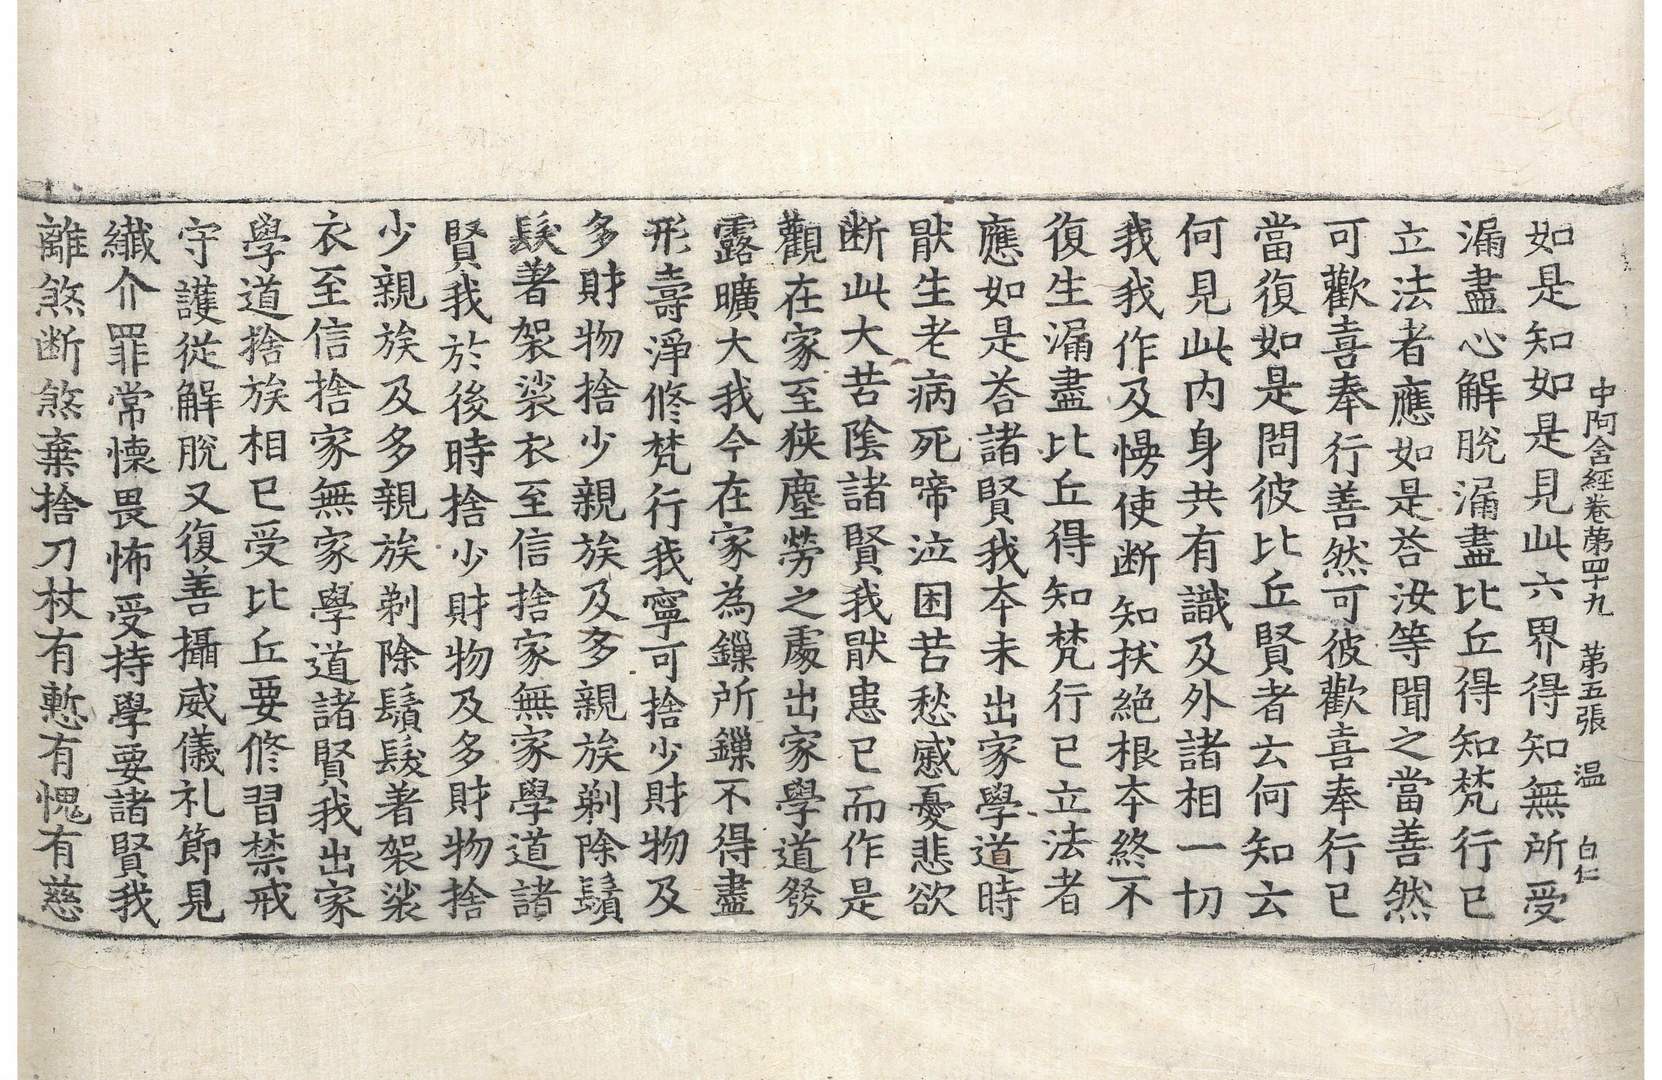 中阿含經卷第四十九 第五張 温 白仁
如是知如是見此六界得知無所受
漏盡心解脫漏盡比丘得知梵行已
立法者應如是荅汝等聞之當善然
可歡喜奉行善然可彼歡喜奉行已
當復如是問彼比丘賢者云何知云
何見此內身共有識及外諸相一切
我我作及慢使断知拔絶根本終不
復生漏盡比丘得知梵行已立法者
應如是荅諸賢我本未出家學道時
猒生老病死啼泣困苦愁慼憂悲欲
断此大苦陰諸賢我猒患已而作是
觀在家至狹塵勞之處出家學道發
露曠大我今在家為鏁所鏁不得盡
形壽淨修梵行我寧可捨少財物及
多財物捨少親族及多親族剃除鬚
髮著袈裟衣至信捨家無家學道諸
賢我於後時捨少財物及多財物捨
少親族及多親族剃除鬚髮著袈裟
衣至信捨家無家學道諸賢我出家
學道捨族相已受比丘要修習禁戒
守護從解脫又復善攝威儀礼節見
纎介罪常懷畏怖受持學要諸賢我
離煞断煞棄捨刀杖有慙有愧有慈